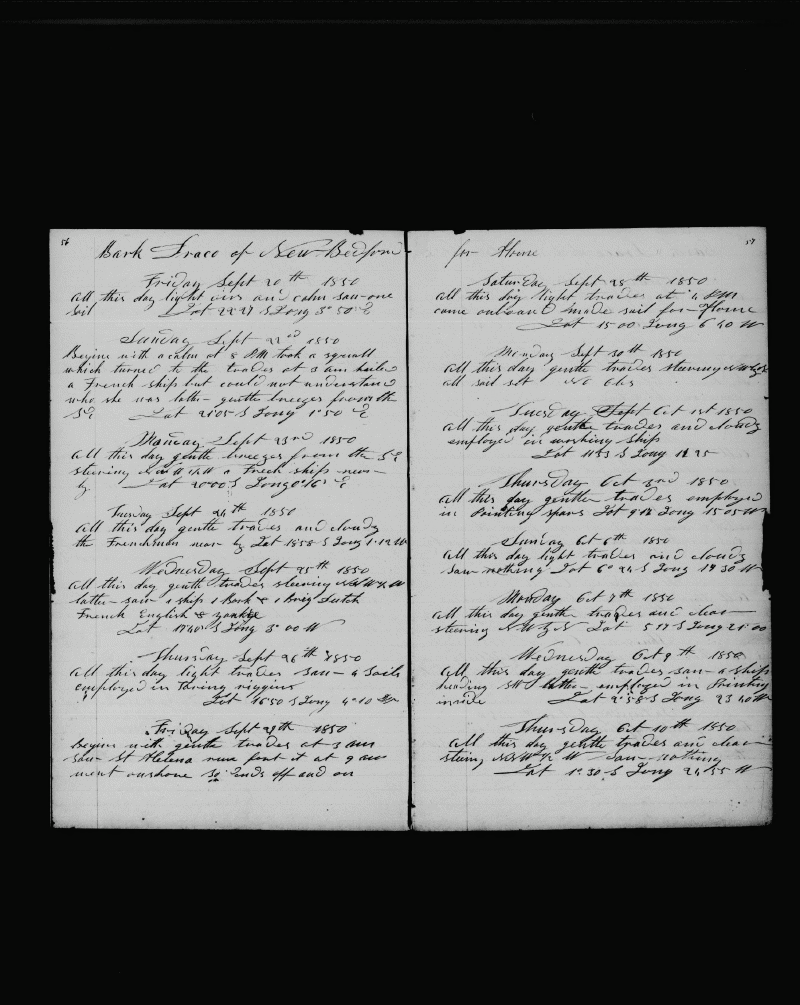 56
Bark Draco of New Bedford
Friday Sept 20th 1850
all this day light airs and calm saw one
sail Lat 22 27 S Long 3° 50 E
Sunday Sept 22nd 1850
Begins with a calm at 8 PM took a squall
which turned to the trades at 3 am hailed
a French ship but could not understand
who she was latter gentle breezes from the
SE Lat 21°05 S Long 1°50 E
Monday Sept 23rd 1850
all this day gentle breezes from the SE
steering a French ships near
by Lat 20°00 S Long 0°16 E
Tuesday Sept 24th 1850
all this day gentle trades and cloudy
the Frenchman near by Lat 18 58 S Long 1.12 W
Wednesday Sept 25th 1850
all this day gentle trades steering NW W
latter saw 1 ship 1 Bark & 1 Brig Dutch
French English & yankee
Lat 17 40 S Long 3° 00 W
Thursday Sept 26th 1850
all this day light trades saw 2 Sails
employed in Taring rigging
Lat 16 50 S Long 4°10 W
Friday Sept 27th 1850
begins with gentle trades at 3 am
saw St Helena near at 9 am
went onshore So Ends off and on
57
for Home
Saturday Sept 28th 1850
all this day light trades at 4 PM
came onboard made sail for Home
Lat 15 00 Long 6 40 W
Monday Sept 30th 1850
all this day gentle trades steering
all sail set No Obs
Tuesday Sept Oct 1st 1850
all this day gentle trades and cloudy
employed in working ship
Lat 11 53 S Long 12 25
Thursday Oct 3rd 1850
all this day gentle trades employed
in Painting spars Lat 9 12 Long 15 05 W
Sunday Oct 6th 1850
all this day light trades and cloudy
Saw nothing Lat 6° 24 S Long 19 30 W
Monday Oct 7th 1850
all this day gentle trades and clear
steering N W by N Lat 5 17 S Long 21 00
Wednesday Oct 9th 1850
all this day gentle trades saw 2 ships
heading latter employed in Painting
inside Lat 2° 58 S Long 23 40 W
Thursday Oct 10th 1850
all this day gentle trades and clear
steering NW W saw nothing
Lat 1° 30 S Long 24 55 W